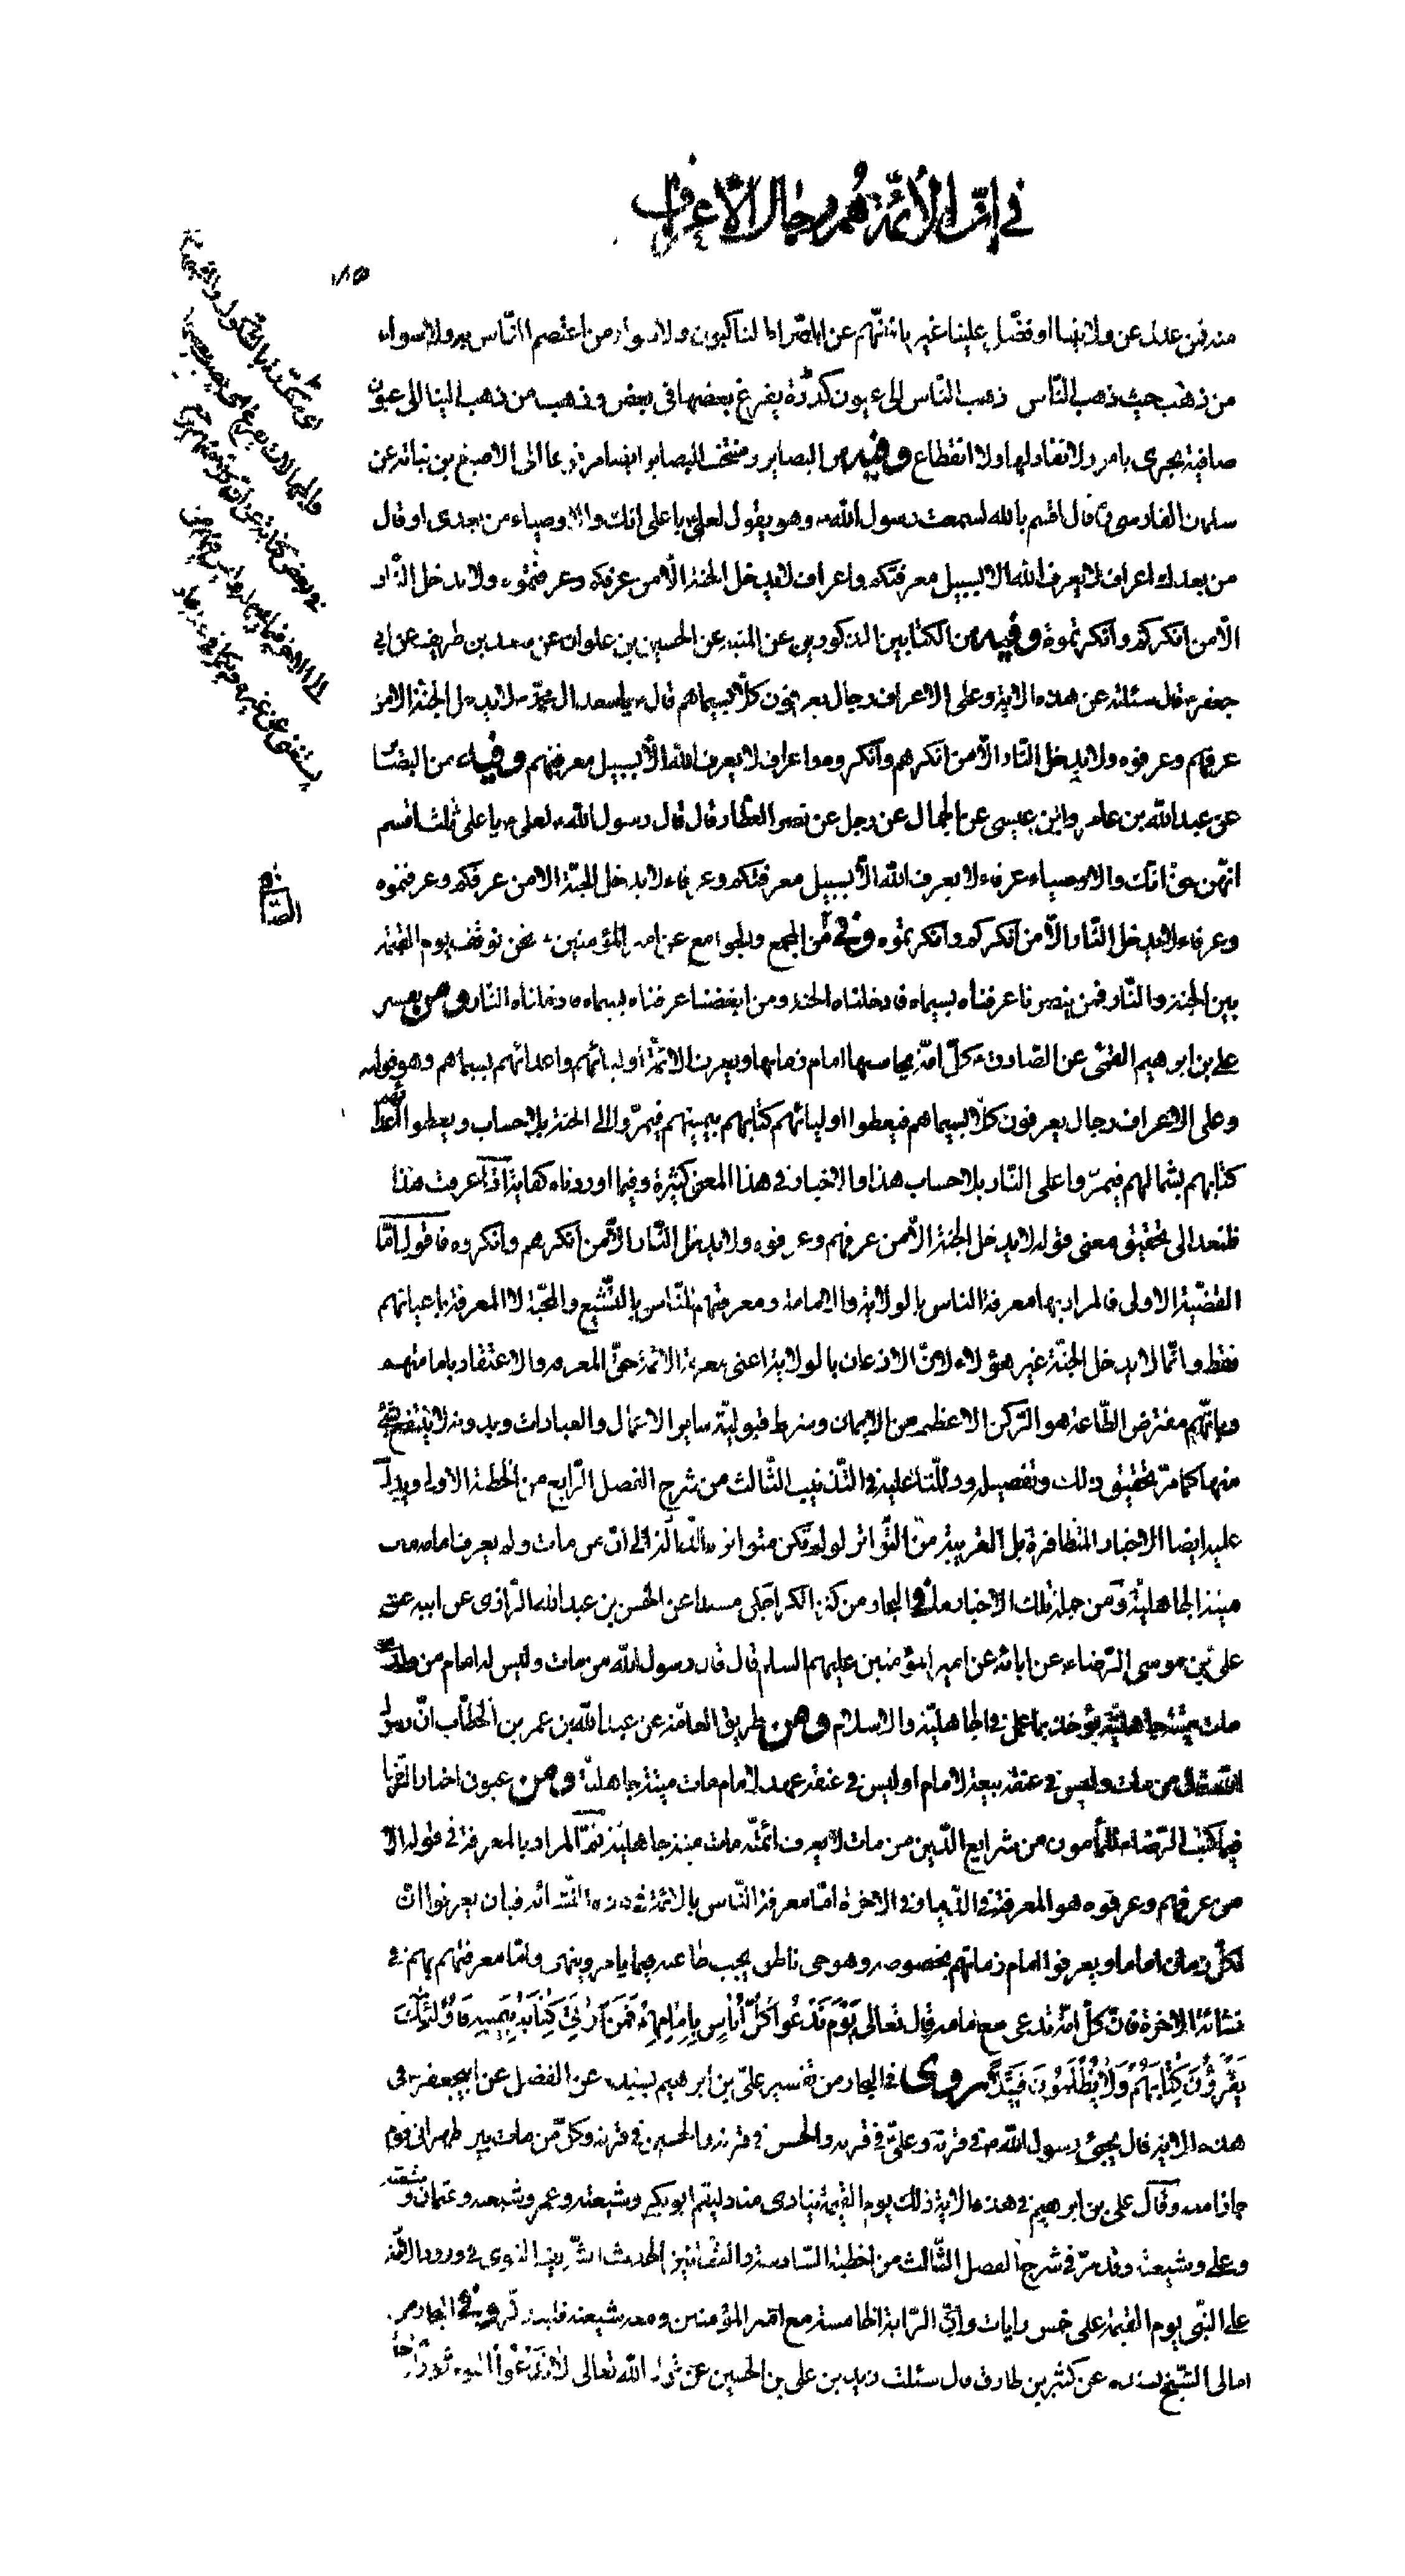 في انّ الأئمّة هم رجال الأعراف
١٨٥
منه فمن عدل عن ولايتنا او فضّل علينا غيرنا فانّهم عن الصّراط لناكبون ولا سواء من اعتصم النّاس به ولا سواء
من ذهب حيث ذهب النّاس ذهب النّاس الى عيون كدرة يفرغ بعضها فى بعض وذهب من ذهب الينا الى عيون
صافية تجرى بامر ولا نفاد لها ولا انقطاع وفيه من البصاير ومنتخب البصاير ايضا مرفوعا الى الاصبغ بن نباتة عن
سلمان الفارسى قال اقسم بالله لسمعت رسول الله وهو يقول لعلى يا على انك والاوصياء من بعدى او قال
من بعدك اعراف لا يعرف الله الا بسبيل معرفتكم واعراف لا يدخل الجنة الّا من عرفكم وعرفتموه ولا يدخل النّار
الّا من انكركم وانكرتموه وفيه من الكتابين المذكورين عن المنبه عن الحسين بن علوان عن سعد بن طريف عن ابى
جعفر قال سئلته عن هذه الاية وعلى الاعراف رجال يعرفون كلّا بسيماهم قال يا سعد ال محمّد لا يدخل الجنّة الا من
عرفهم وعرفوه ولا يدخل النّار الّا من انكرهم وانكروه واعراف لا يعرف الله الّا بسبيل معرفتهم وفيه من البصائر
عن عبد الله بن عامر وابن عيسى عن الجمال عن رجل عن نصر العطّار قال قال رسول الله لعلى يا على ثلث اقسم
انهّن حقّ انّك والاوصياء عرفاء لا يعرف الله الّا بسبيل معرفتكم وعرفاء لا يدخل الجنّة الا من عرفكم وعرفتموه
وعرفاء لا يدخل النّار الّا من انكركم وانكرتموه وفى من المجمع والجوامع عن امير المؤمنين نحن نوقف يوم القيمة
بين الجنة والنّار فمن ينصرنا عرفناه بسيماه فادخلناه الجنة ومن ابغضنا عرفناه بسيماه فادخلناه النّار ومن تفسير
على بن ابرهيم القمّى عن الصّادق كلّ امّة يحاسبها امام زمانها ويعرف الائمّة اوليائهم واعدائهم بسيماهم وهو قوله
وعلى الاعراف رجال يعرفون كلّا بسيماهم فيعطوا اوليائهم كتابهم بيمينهم فيمرّوا الى الجنة بلا حساب ويعطوا اعدائهم
كتابهم بشمالهم فيمرّوا على النّار بلا حساب هذا والاخبار فى هذا المعنى كثيرة وفيما اوردناه كفاية اذا عرفت هذا
فلنعد الى تحقيق معنى قوله لا يدخل الجنة الّا من عرفهم وعرفوه ولا يدخل النّار الّا من انكرهم وانكروه فاقول امّا
القضيّة الاولى فالمراد بها معرفة الناس بالولاية والامامة ومعرفتهم للنّاس بالتّشيّع والمحبّة لا المعرفة باعيانهم
فقط وانّما لا يدخل الجنّة غير هؤلاء لانّ الاذعان بالولاية اعنى معرفة الائمة حقّ المعرفة والاعتقاد بامامتهم
وبانّهم مفترض الطّاعة هو الرّكن الاعظم من الايمان وشرط قبوليّة ساير الاعمال والعبادات وبدونه لا ينتفع بشئ
منها كما مرّ تحقيق ذلك وتفصيله ودلّلنا عليه فى التّذنيب الثّالث من شرح الفصل الرّابع من الخطبة الاولى ويدلّ
عليه ايضا الاخبار المتظافرة بل القريبة من التّواتر لو لم تكن متواترة الدّالّة الى انّ من مات ولم يعرف امامه مات
ميتة الجاهلية ومن جملة تلك الاخبار ما فى البحار من كنز الكراجكى مسندا عن الحسن بن عبد الله الرّازى عن ابيه عن
على بن موسى الرّضا عن ابائه عن امير المؤمنين عليهم السلم قال قال رسول الله من مات وليس له امام من ولدى
مات ميتة جاهليّة يؤخذ بما عمل فى الجاهليّة والاسلام ومن طريق العامّة عن عبد الله بن عمر بن الخطّاب انّ رسول
الله قال من مات وليس فى عنقه بيعة لامام او ليس فى عنقه عهد لامام مات ميتة جاهليّة ومن عيون اخبار الرّضا
فيما كتب الرّضا للمأمون من شرايع الدّين من مات لا يعرف ائمّته مات ميتة جاهليّة ثمّ المراد بالمعرفة فى قوله الّا
من عرفهم وعرفوه هو المعرفة فى الدّنيا وفى الاخرة امّا معرفة النّاس بالائمة فى هذه النّشأة فبان يعرفوا انّ
لكلّ زمان اماما ويعرفوا امام زمانهم بخصوصه وهو حى ناطق يجب طاعته فيما يامر وينهى وامّا معرفتهم بهم فى
نشأة الاخرة فانّ كلّ امّة تدعى مع امامه قال تعالى يَوْمَ نَدْعُوا كُلَّ اُناسٍ بِاِمامِهِمْ فَمَنْ اُوتِيَ كِتابَهُ بِيَمينِهِ فَاُولٰئِكَ
يَقْرَؤُنَ كِتابَهُمْ وَلا يُظْلَمُونَ فَتيلًا روى فى البحار من تفسير علىّ بن ابرهيم بسنده عن الفضل عن ابيجعفر فى
هذه الاية قال يجئ رسول الله فى فرقة وعلىّ فى فرقة والحسن فى فرقة والحسين فى فرقة وكلّ من مات بين ظهرانى قوم
جاؤا معه وقال على بن ابرهيم فى هذه الاية ذلك يوم القيمة ينادى مناد ليقم ابو بكر وشيعته وعمر وشيعته وعثمان وشيعته
وعلى وشيعته وقد مرّ فى شرح الفصل الثّالث من الخطبة السّادسة الحديث الشّريف النّبوى فى ورود الامّة
على النّبى يوم القيمة على خمس رايات وانّ الرّاية الخامسة مع امير المؤمنين ومعه شيعته وفى البحار من
امالى الشّيخ بسنده عن كثير بن طارق قال سئلت زيد بن على بن الحسين عن قول الله تعالى لا تَدْعُوا الْيَوْمَ ثُبُوراً واحِداً